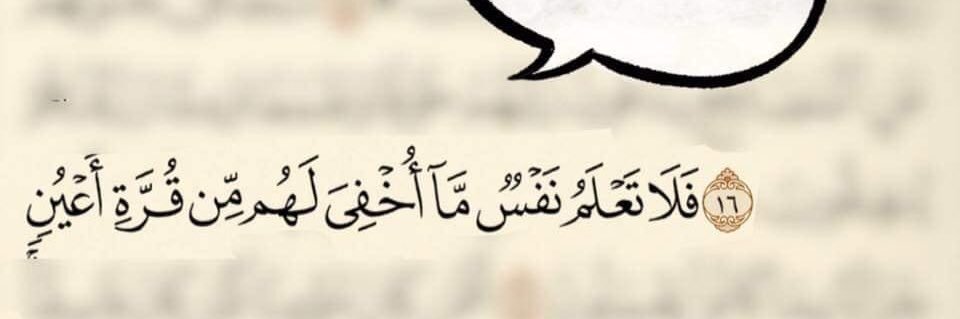 ١٦ فَلَا تَعْلَمُ نَفْسٌ مَّآ أُخْفِىَ لَهُم مِّن قُرَّةِ أَعْيُنٍ